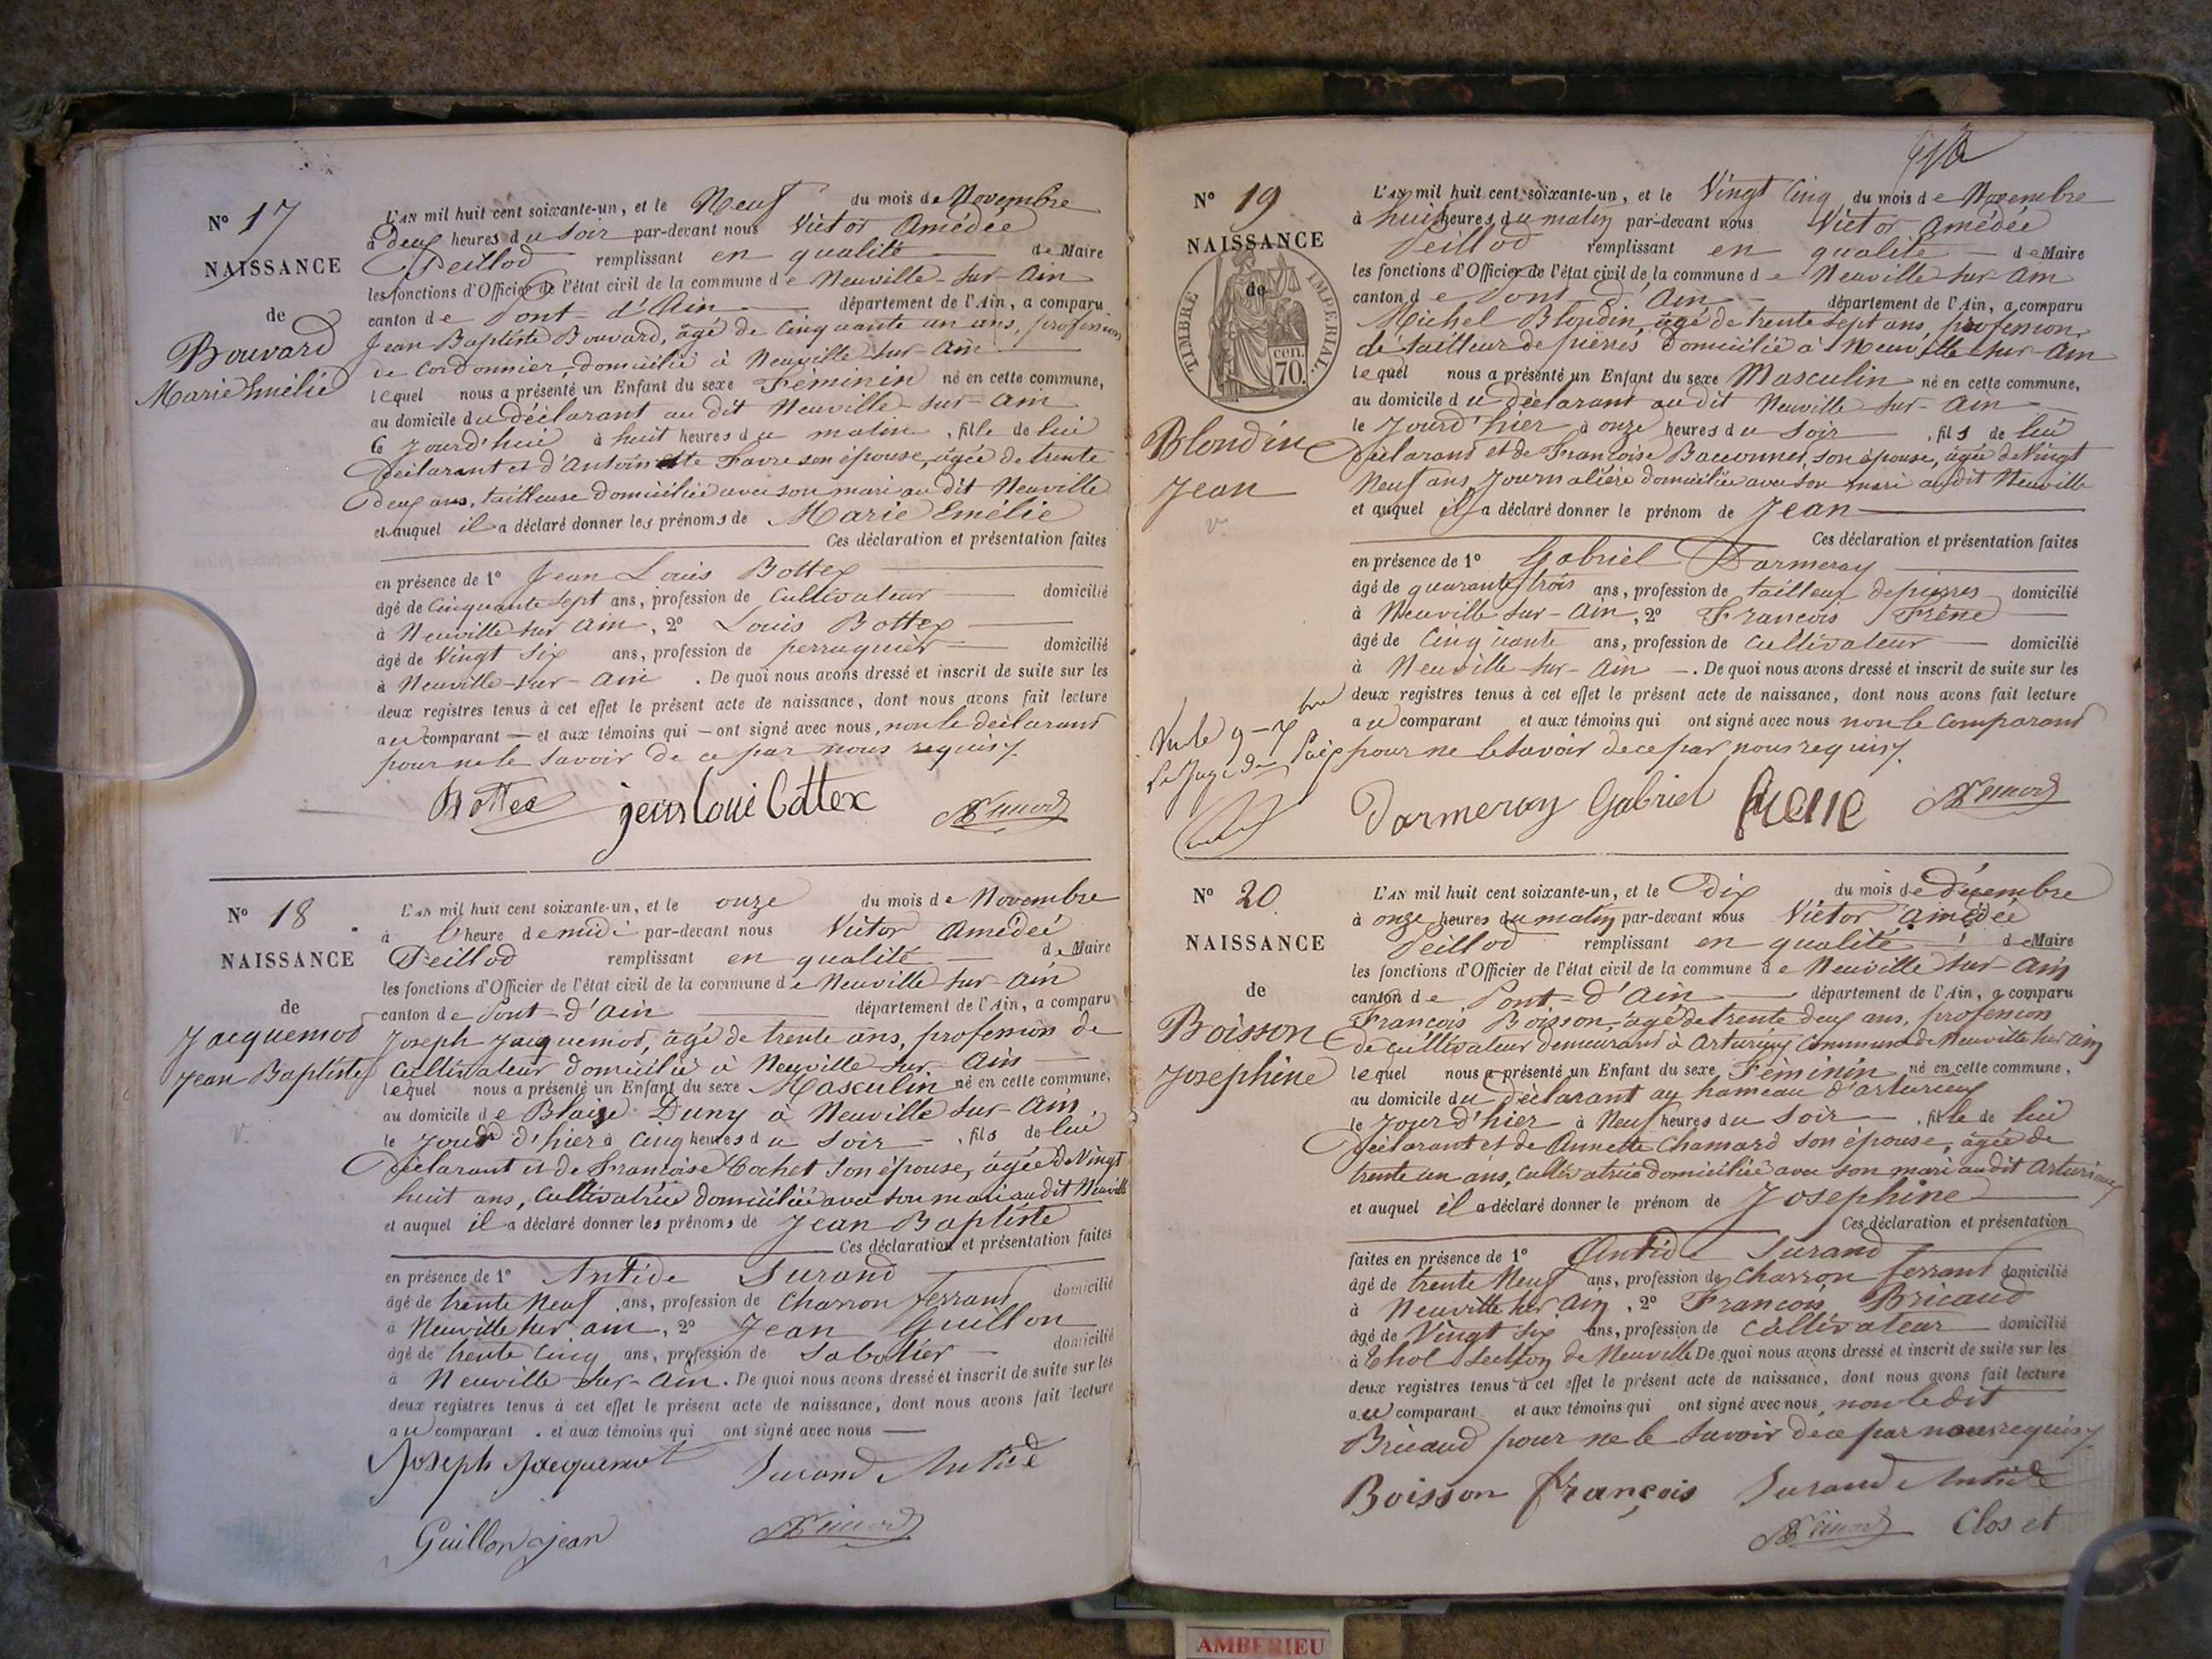 N° 17
NAISSANCE
de
Bouvard
Marie Emélie
L'AN mil huit cent soixante-un, et le Neuf du mois de Novembre
à Deux heures du soir par-devant nous Victor Amédée
Peillod remplissant en qualité de Maire
les fonctions d'Officier de l'état civil de la commune de Neuville-sur-Ain
canton de Pont-d'Ain département de l'Ain, a comparu
Jean Baptiste Bouvard, âgé de Cinquante un ans, profession
de Cordonnier domicilié à Neuville-sur-Ain
lequel nous a présenté un Enfant du sexe Féminin né en cette commune,
au domicile du déclarant au dit Neuville-sur-Ain
le jourd'hui à huit heures du matin, fille de lui
Déclarant et d'Antoinette Favre son épouse, âgée de trente
deux ans, tailleuse domiciliée avec son mari au dit Neuville
et auquel il a déclaré donner les prénoms de Marie Emélie
Ces déclaration et présentation faites
en présence de 1° Jean Louis Bottex
âgé de Cinquante sept ans, profession de Cultivateur domicilié
à Neuville sur Ain, 2° Louis Bottex
âgé de Vingt Six ans, profession de perruquier domicilié
à Neuville-sur-Ain. De quoi nous avons dressé et inscrit de suite sur les
deux registres tenus à cet effet le présent acte de naissance, dont nous avons fait lecture
au comparant et aux témoins qui ont signé avec nous, non le déclarant
pour ne le savoir de ce par nous requis
Bottex jean Loui Bottex
N° 18
NAISSANCE
de
Jacquemod
Jean Baptiste
L'AN mil huit cent soixante-un, et le onze du mois de Novembre
à l'heure de midi par-devant nous Victor Amédée
Peillod remplissant en qualité de Maire
les fonctions d'Officier de l'état civil de la commune de Neuville sur Ain
canton de Pont-d'Ain département de l'Ain, a comparu
Joseph Jacquemod, âgé de trente ans, profession de
Cultivateur domicilié à Neuville-sur-Ain
lequel nous a présenté un Enfant du sexe Masculin né en cette commune,
au domicile de Blaise Duny à Neuville sur-Ain,
le jour d'hier à Cinq heures du soir, fils de lui
Déclarant et de Françoise Cochet son épouse, âgée de Vingt
huit ans, Cultivatrice domiciliée avec son mari au dit Neuville
et auquel il a déclaré donner les prénoms de Jean Baptiste
Ces déclaration et présentation faites
en présence de 1° Antide Surand
âgé de trente Neuf ans, profession de Charron ferrant domicilié
à Neuville sur Ain, 2° Jean Guillon
âgé de trente Cinq ans, profession de Sabotier domicilié
à Neuville-sur-Ain. De quoi nous avons dressé et inscrit de suite sur les
deux registres tenus à cet effet le présent acte de naissance, dont nous avons fait lecture
au comparant et aux témoins qui ont signé avec nous
Joseph Jacquemot Surand Antide
Guillon Jean
N° 19
NAISSANCE
de
TIMBRE IMPÉRIAL.
cen.
70.
Blondin
Jean
L'AN mil huit cent soixante-un, et le Vingt Cinq du mois de Novembre
à huit heures du matin par-devant nous Victor Amédée
Peillod remplissant en qualité de Maire
les fonctions d'Officier de l'état civil de la commune de Neuville sur-Ain
canton de Pont-d'Ain département de l'Ain, a comparu
Michel Blondin, âgé de trente sept ans, profession
de tailleur de pierres domicilié à Neuville sur-Ain
lequel nous a présenté un Enfant du sexe Masculin né en cette commune,
au domicile du déclarant au dit Neuville sur-Ain
le jourd'hier à onze heures du soir, fils de lui
Déclarant et de Françoise son épouse, âgée de Vingt
Neuf ans, Journalière domiciliée avec son mari au dit Neuville
et auquel il a déclaré donner le prénom de Jean
Ces déclaration et présentation faites
en présence de 1° Gabriel Darmeray
âgé de quarante trois ans, profession de tailleur de pierres domicilié
à Neuville sur-Ain, 2° François Frène
âgé de Cinquante ans, profession de Cultivateur domicilié
à Neuville-sur-Ain. De quoi nous avons dressé et inscrit de suite sur les
deux registres tenus à cet effet le présent acte de naissance, dont nous avons fait lecture
au comparant et aux témoins qui ont signé avec nous non le Comparant
pour ne le savoir de ce par nous requis
Vu le 9 bre
Le Juge de Paix
Darmeray Gabriel frene
N° 20
NAISSANCE
de
Boisson
Josephine
L'AN mil huit cent soixante-un, et le Dix du mois de décembre
à onze heures du matin par-devant nous Victor Amédée
Peillod remplissant en qualité de Maire
les fonctions d'Officier de l'état civil de la commune de Neuville sur-Ain
canton de Pont-d'Ain département de l'Ain, a comparu
François Boisson, âgé de trente deux ans, profession
de Cultivateur demeurant à Arturieux Commune de Neuville sur Ain
lequel nous a présenté un Enfant du sexe Féminin né en cette commune,
au domicile du Déclarant au hameau d'arturieux
le Jour d'hier à Neuf heures du soir, fille de lui
Déclarant et de Annette Chamard son épouse, âgée de
trente un ans, Cultivatrice domiciliée avec son mari au dit Arturieux
et auquel il a déclaré donner le prénom de Josephine
Ces déclaration et présentation
faites en présence de 1° Antide Surand
âgé de trente Neuf ans, profession de Charron ferrant domicilié
à Neuville sur Ain, 2° François Bricaud
âgé de Vingt Six ans, profession de Cultivateur domicilié
à Thol section de Neuville De quoi nous avons dressé et inscrit de suite sur les
deux registres tenus à cet effet le présent acte de naissance, dont nous avons fait lecture
au comparant et aux témoins qui ont signé avec nous, non le dit
Bricaud pour ne le savoir de ce par nous requis
Boisson françois Surand Antide
Clos et
AMBERIEU